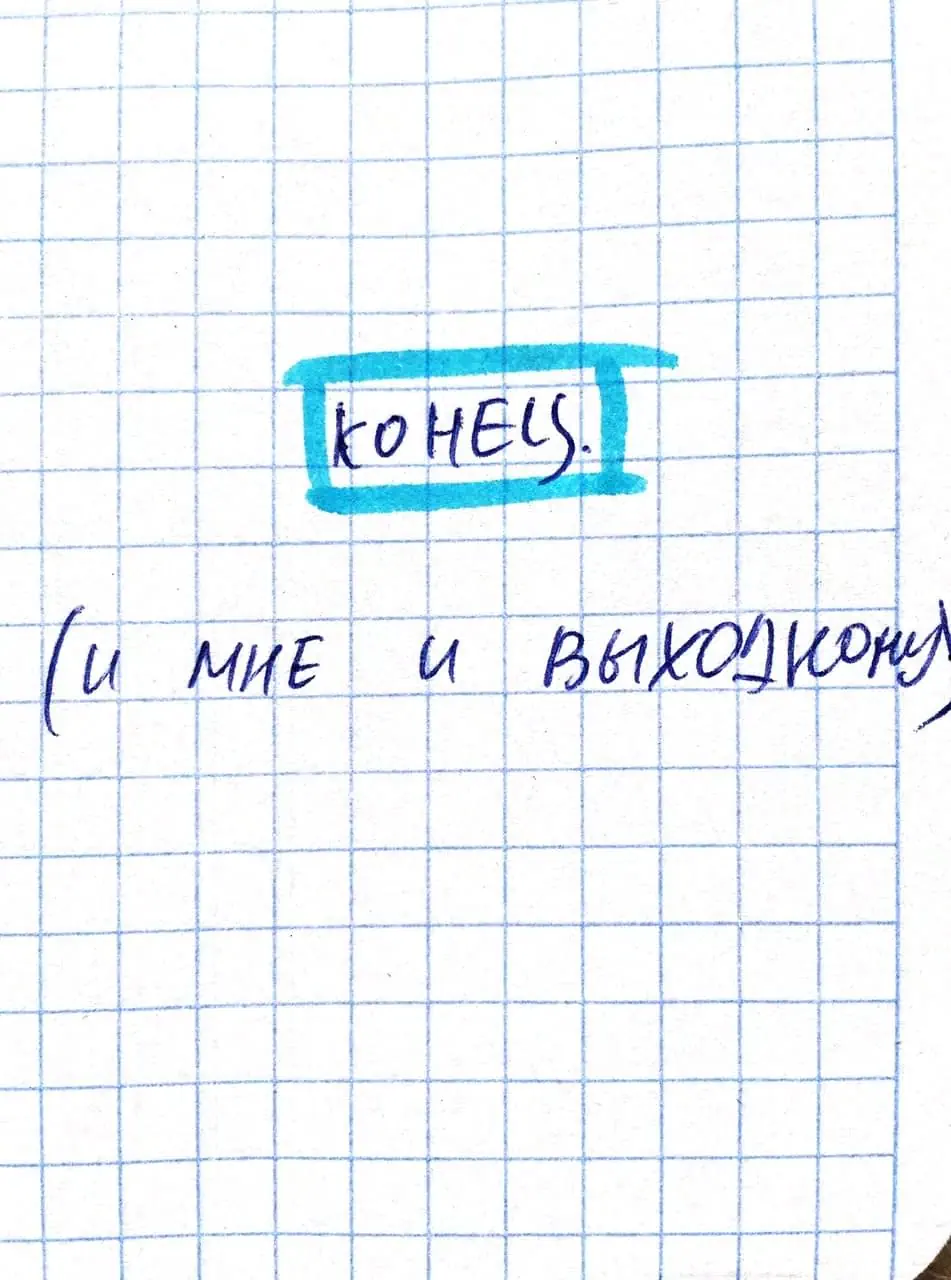 КОНЕЦ.
(И МНЕ И ВЫХОДНОМУ)